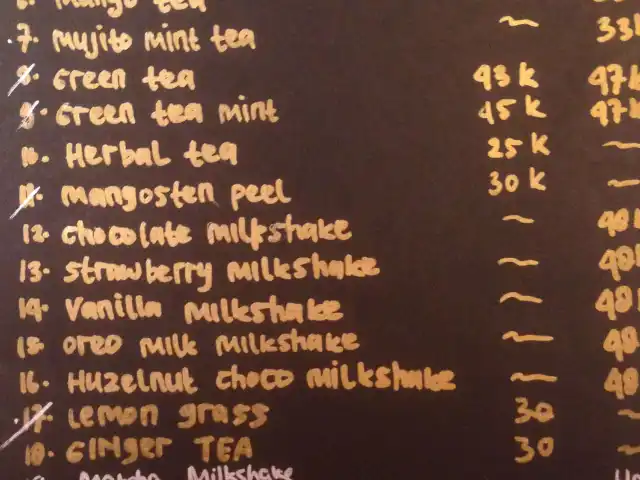 6. Mango tea
.7. Mujito Mint tea ~ 33k
8. Green tea 43 k 47k
9. Green tea Mint 45 k 47k
10. Herbal tea 25 k ~
11. Mangosten peel 30 k ~
12. chocolate milkshake ~ 40k
13. Strawberry Milkshake ~ 40k
14. Vanilla Milkshake ~ 40k
15. Oreo Milk Milkshake ~ 40
16. Huzelnut choco Milkshake ~ 40
17. Lemon grass 30 ~
18. GINGER TEA 30 ~
Matcha Milkshake